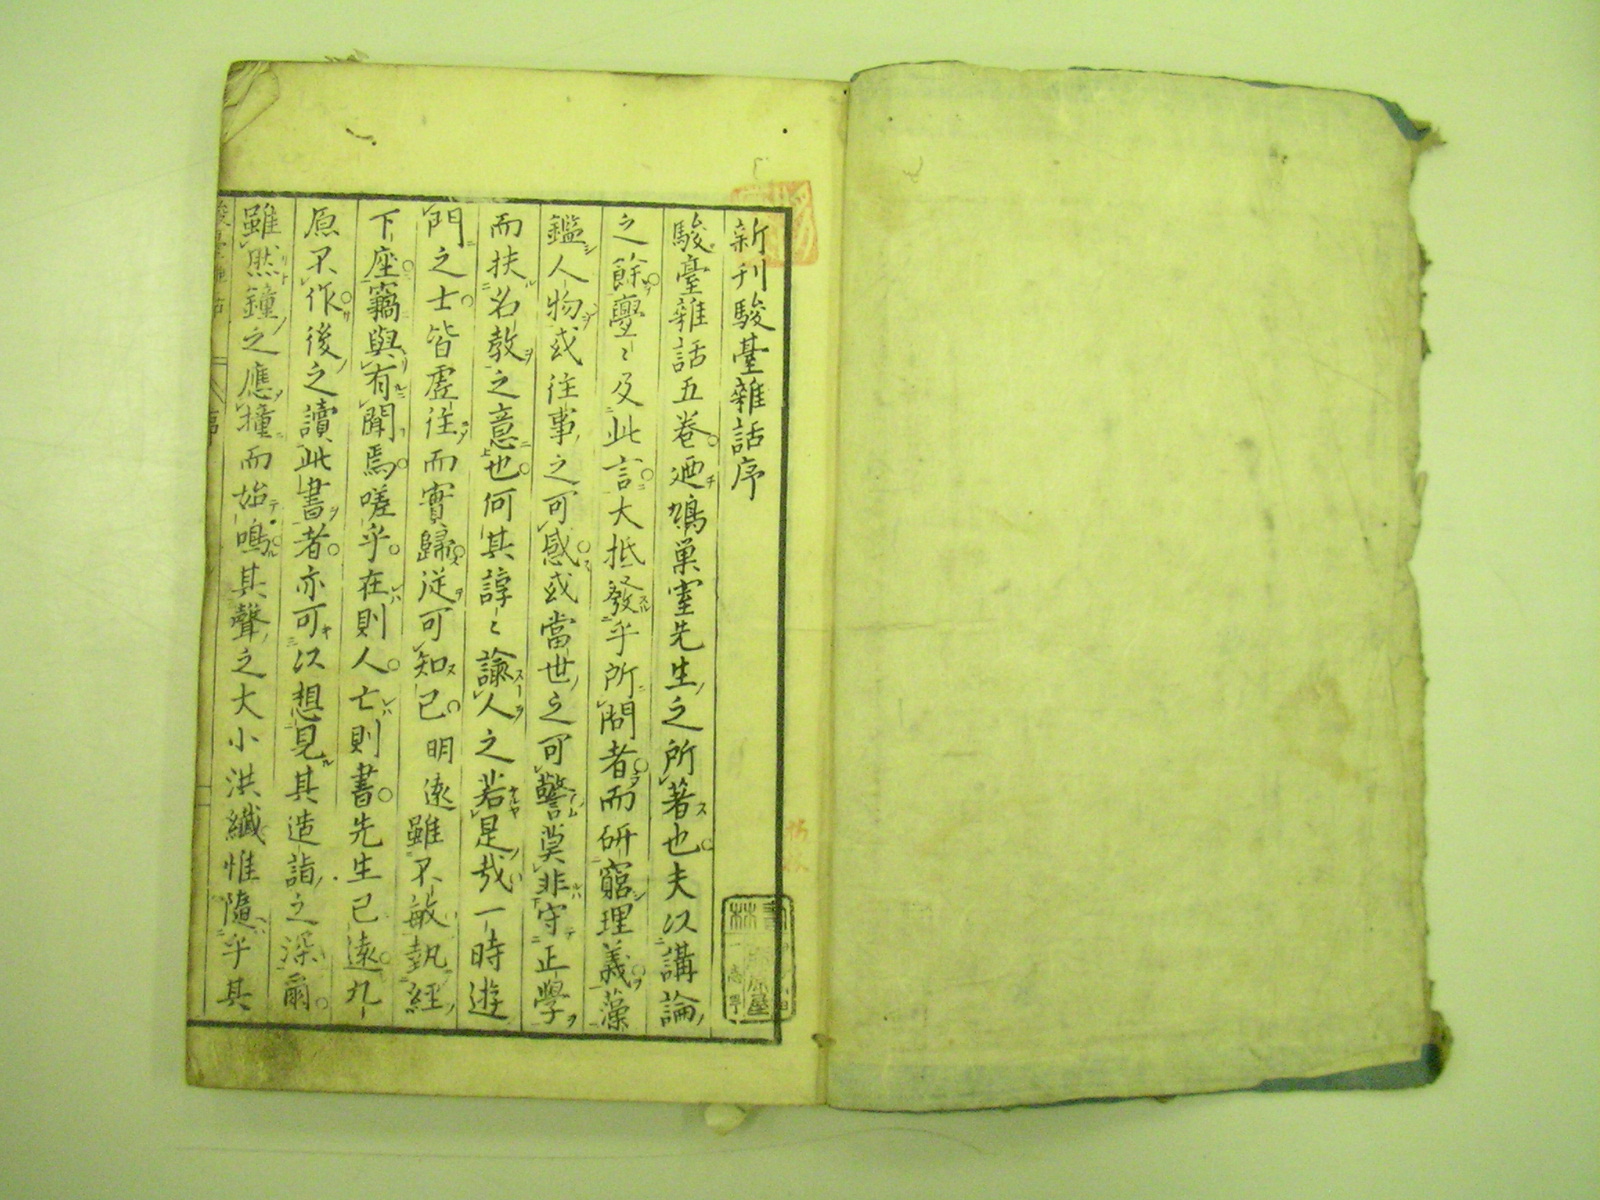 新刊駿臺雜話序
駿臺雜話五卷迺鳩巣室先生之所著也夫以講論
之餘亹〻及此言大抵發乎所問者而研窮理義藻
鑑人物或往事之可感或當世之可警莫非守正學
而扶名教之意也何其諄〻諭人之若是哉一時遊
門之士皆虚往而實歸從可知已明遠雖不敏執經
下座竊與有聞焉嗟乎在則人亡則書先生已遠九
原不作後之讀此書者亦可以想見其造詣之深爾
雖然鐘之應撞而始鳴其聲之大小洪纖惟隨乎其